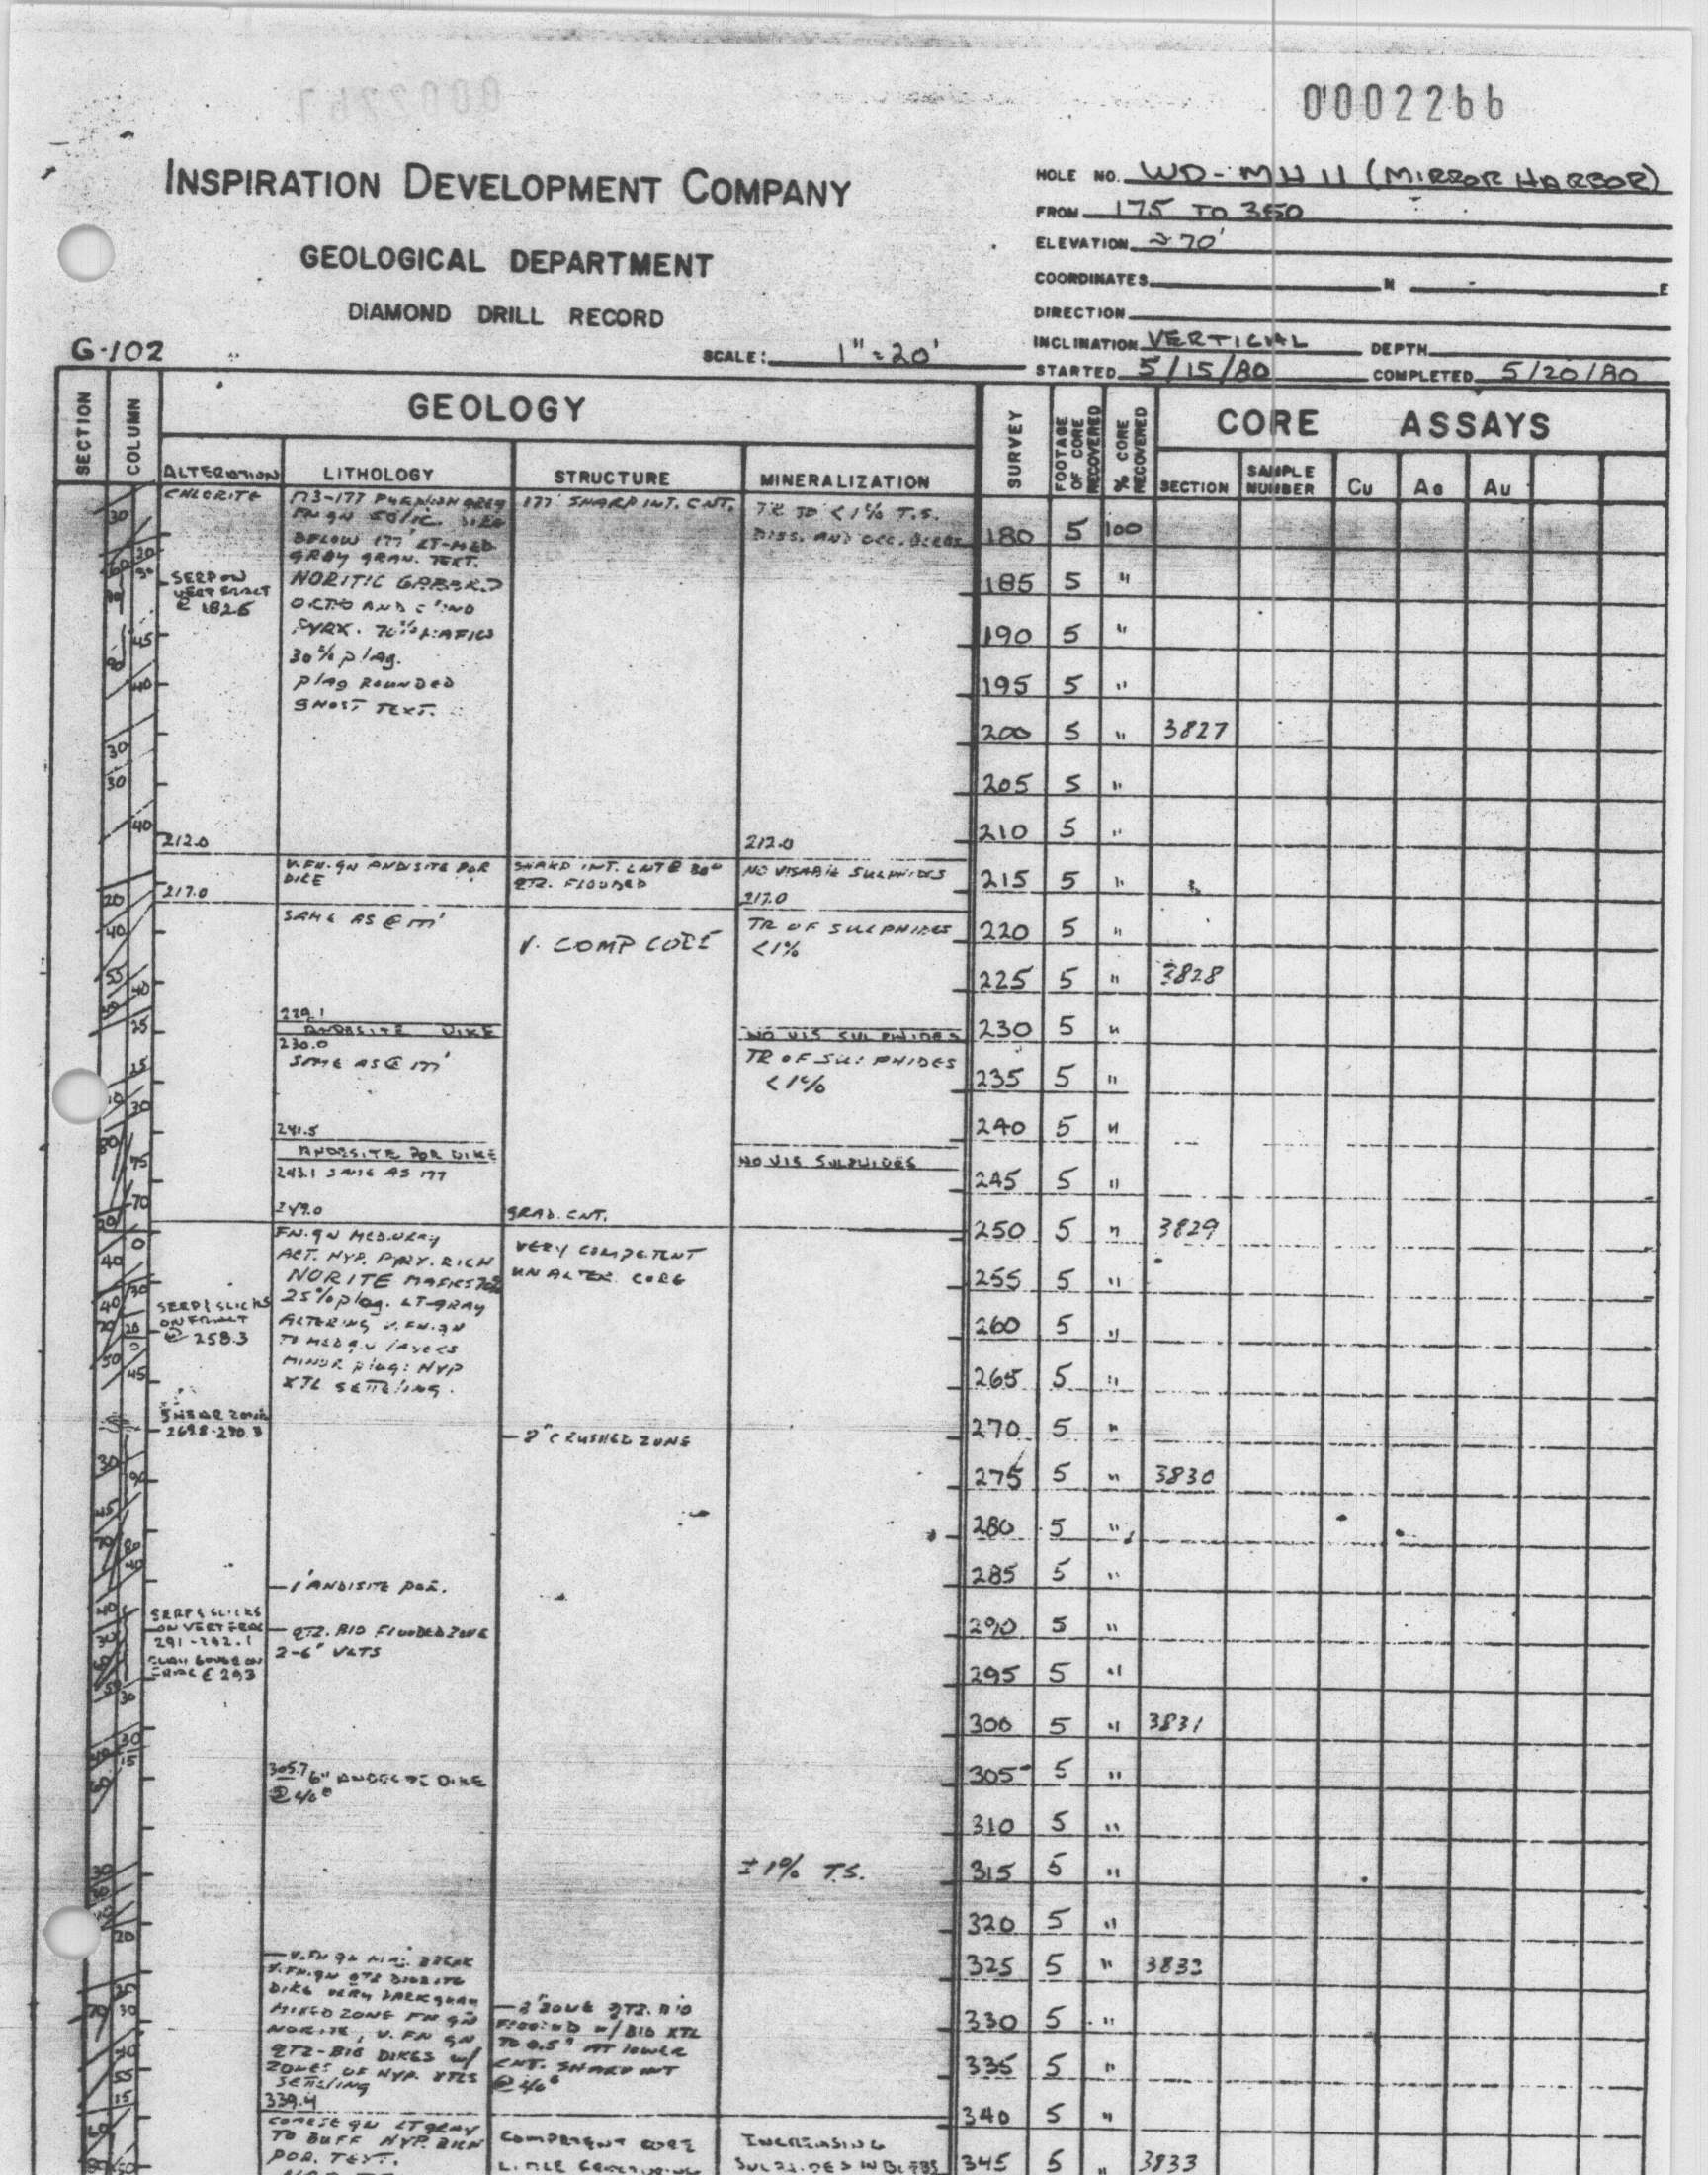 0002266
INSPIRATION DEVELOPMENT COMPANY
GEOLOGICAL DEPARTMENT
DIAMOND DRILL RECORD
G-102
SCALE: 1"=20'
HOLE NO. WD-MH 11 (MIRROR HARBOR)
FROM 175 TO 350
ELEVATION ≈70'
COORDINATES N E
DIRECTION
INCLINATION VERTICIAL DEPTH
STARTED 5/15/80 COMPLETED 5/20/80
SECTION
COLUMN
GEOLOGY
ALTERATION
LITHOLOGY
STRUCTURE
MINERALIZATION
SURVEY
FOOTAGE OF CORE RECOVERED
% CORE RECOVERED
CORE ASSAYS
SECTION
SAMPLE NUMBER
Cu
Ag
Au
CHLORITE
SERP ON
VERT FRACT
@ 182.5
212.0
217.0
SERP & SLICKS
ON FRACT
@ 258.3
SHEAR ZONE
269.8-270.3
SERP & SLICKS
ON VERT FRAC
291-292.1
CLAY GOUGE ON
FRAC @ 293
FN GN
BELOW 177' LT-MED
GRAY GRAN. TEXT.
NORITIC GABBRO
ORTHO AND CLINO
PYRX. 70% MAFICS
30% plag.
plag ROUNDED
GHOST TEXT.
V.FN.GN ANDISITE POR
DIKE
SAME AS @ 177'
229.1
ANDESITE DIKE
230.0
SAME AS @ 177'
241.5
ANDESITE POR DIKE
243.1 SAME AS 177
249.0
FN.GN MED.GRAY
HYP. RICH
NORITE MAFICS
25% plag. LT-GRAY
ALTERING V.FN.GN
TO MED GN LAYERS
MINOR plag: HYP
XTL SETTELING.
1' ANDISITE POR.
QTZ. BIO FLOODED ZONE
2-6" VLTS
305.7 6" ANDESITE DIKE
@ 40°
V.FN GN
V.FN.GN QTZ DIORITE
DIKE VERY DARK GRAY
MIXED ZONE FN GN
NORITE, V. FN GN
QTZ-BIO DIKES W/
ZONES OF HYP. XTLS
SETTLING
339.4
COARSE GN LT GRAY
TO BUFF HYP. RICH
POR. TEXT.
177' SHARP INT. CNT.
SHARP INT. CNT @ 30°
QTZ. FLOODED
V. COMP CORE
GRAD. CNT.
VERY COMPETENT
UNALTER. CORE
2" CRUSHED ZONE
2' ZONE QTZ. BIO
FLOODED W/ BIO XTL
TO 0.5" AT LOWER
CNT. SHARP INT
@ 40°
COMPETENT CORE
TR TO <1% T.S.
DISS. AND OCC. BLEBS
212.0
NO VISABLE SULPHIDES
217.0
TR OF SULPHIDES
<1%
NO VIS SULPHIDES
TR OF SULPHIDES
<1%
NO VIS SULPHIDES
± 1% T.S.
INCREASING
SULPHIDES IN BLEBS
180 5 100
185 5 "
190 5 "
195 5 "
200 5 " 3827
205 5 "
210 5 "
215 5 "
220 5 "
225 5 " 3828
230 5 "
235 5 "
240 5 "
245 5 "
250 5 " 3829
255 5 "
260 5 "
265 5 "
270 5 "
275 5 " 3830
280 5 "
285 5 "
290 5 "
295 5 "
300 5 " 3831
305 5 "
310 5 "
315 5 "
320 5 "
325 5 " 3832
330 5 "
335 5 "
340 5 "
345 5 " 3833